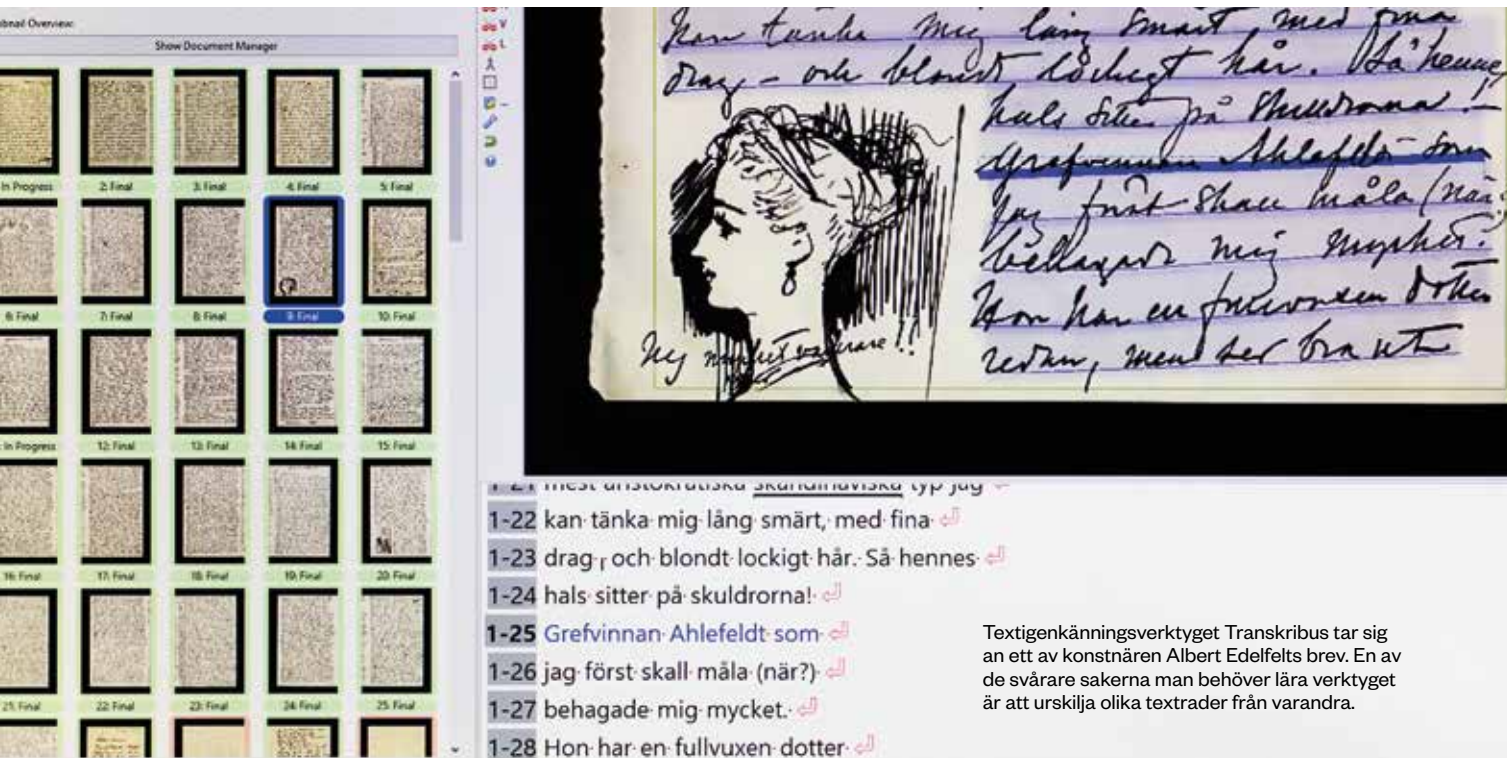 bnail Overview:
Show Document Manager
In Progress 2: Final 3: Final 4: Final 5: Final
6: Final 7: Final 8: Final 9: Final 10: Final
In Progress 12: Final 13: Final 14: Final 15: Final
16: Final 17: Final 18: Final 19: Final 20: Final
21: Final 22: Final 23: Final 24: Final 25: Final
V
L
kan tänka mig lång smärt med fina
drag – och blondt lockigt hår. Så hennes
hals sitter på skuldrorna! –
Grefvinnan Ahlefeldt som
jag först skall måla (när?)
behagade mig mycket.
Hon har en fullvuxen dotter
redan, men ser bra ut
Nej mycket vackrare!!
1-21 mest aristokratiska skandinaviska typ jag
1-22 kan tänka mig lång smärt, med fina
1-23 drag, och blondt lockigt hår. Så hennes
1-24 hals sitter på skuldrorna!
1-25 Grefvinnan Ahlefeldt som
1-26 jag först skall måla (när?)
1-27 behagade mig mycket.
1-28 Hon har en fullvuxen dotter
Textigenkänningsverktyget Transkribus tar sig
an ett av konstnären Albert Edelfelts brev. En av
de svårare sakerna man behöver lära verktyget
är att urskilja olika textrader från varandra.